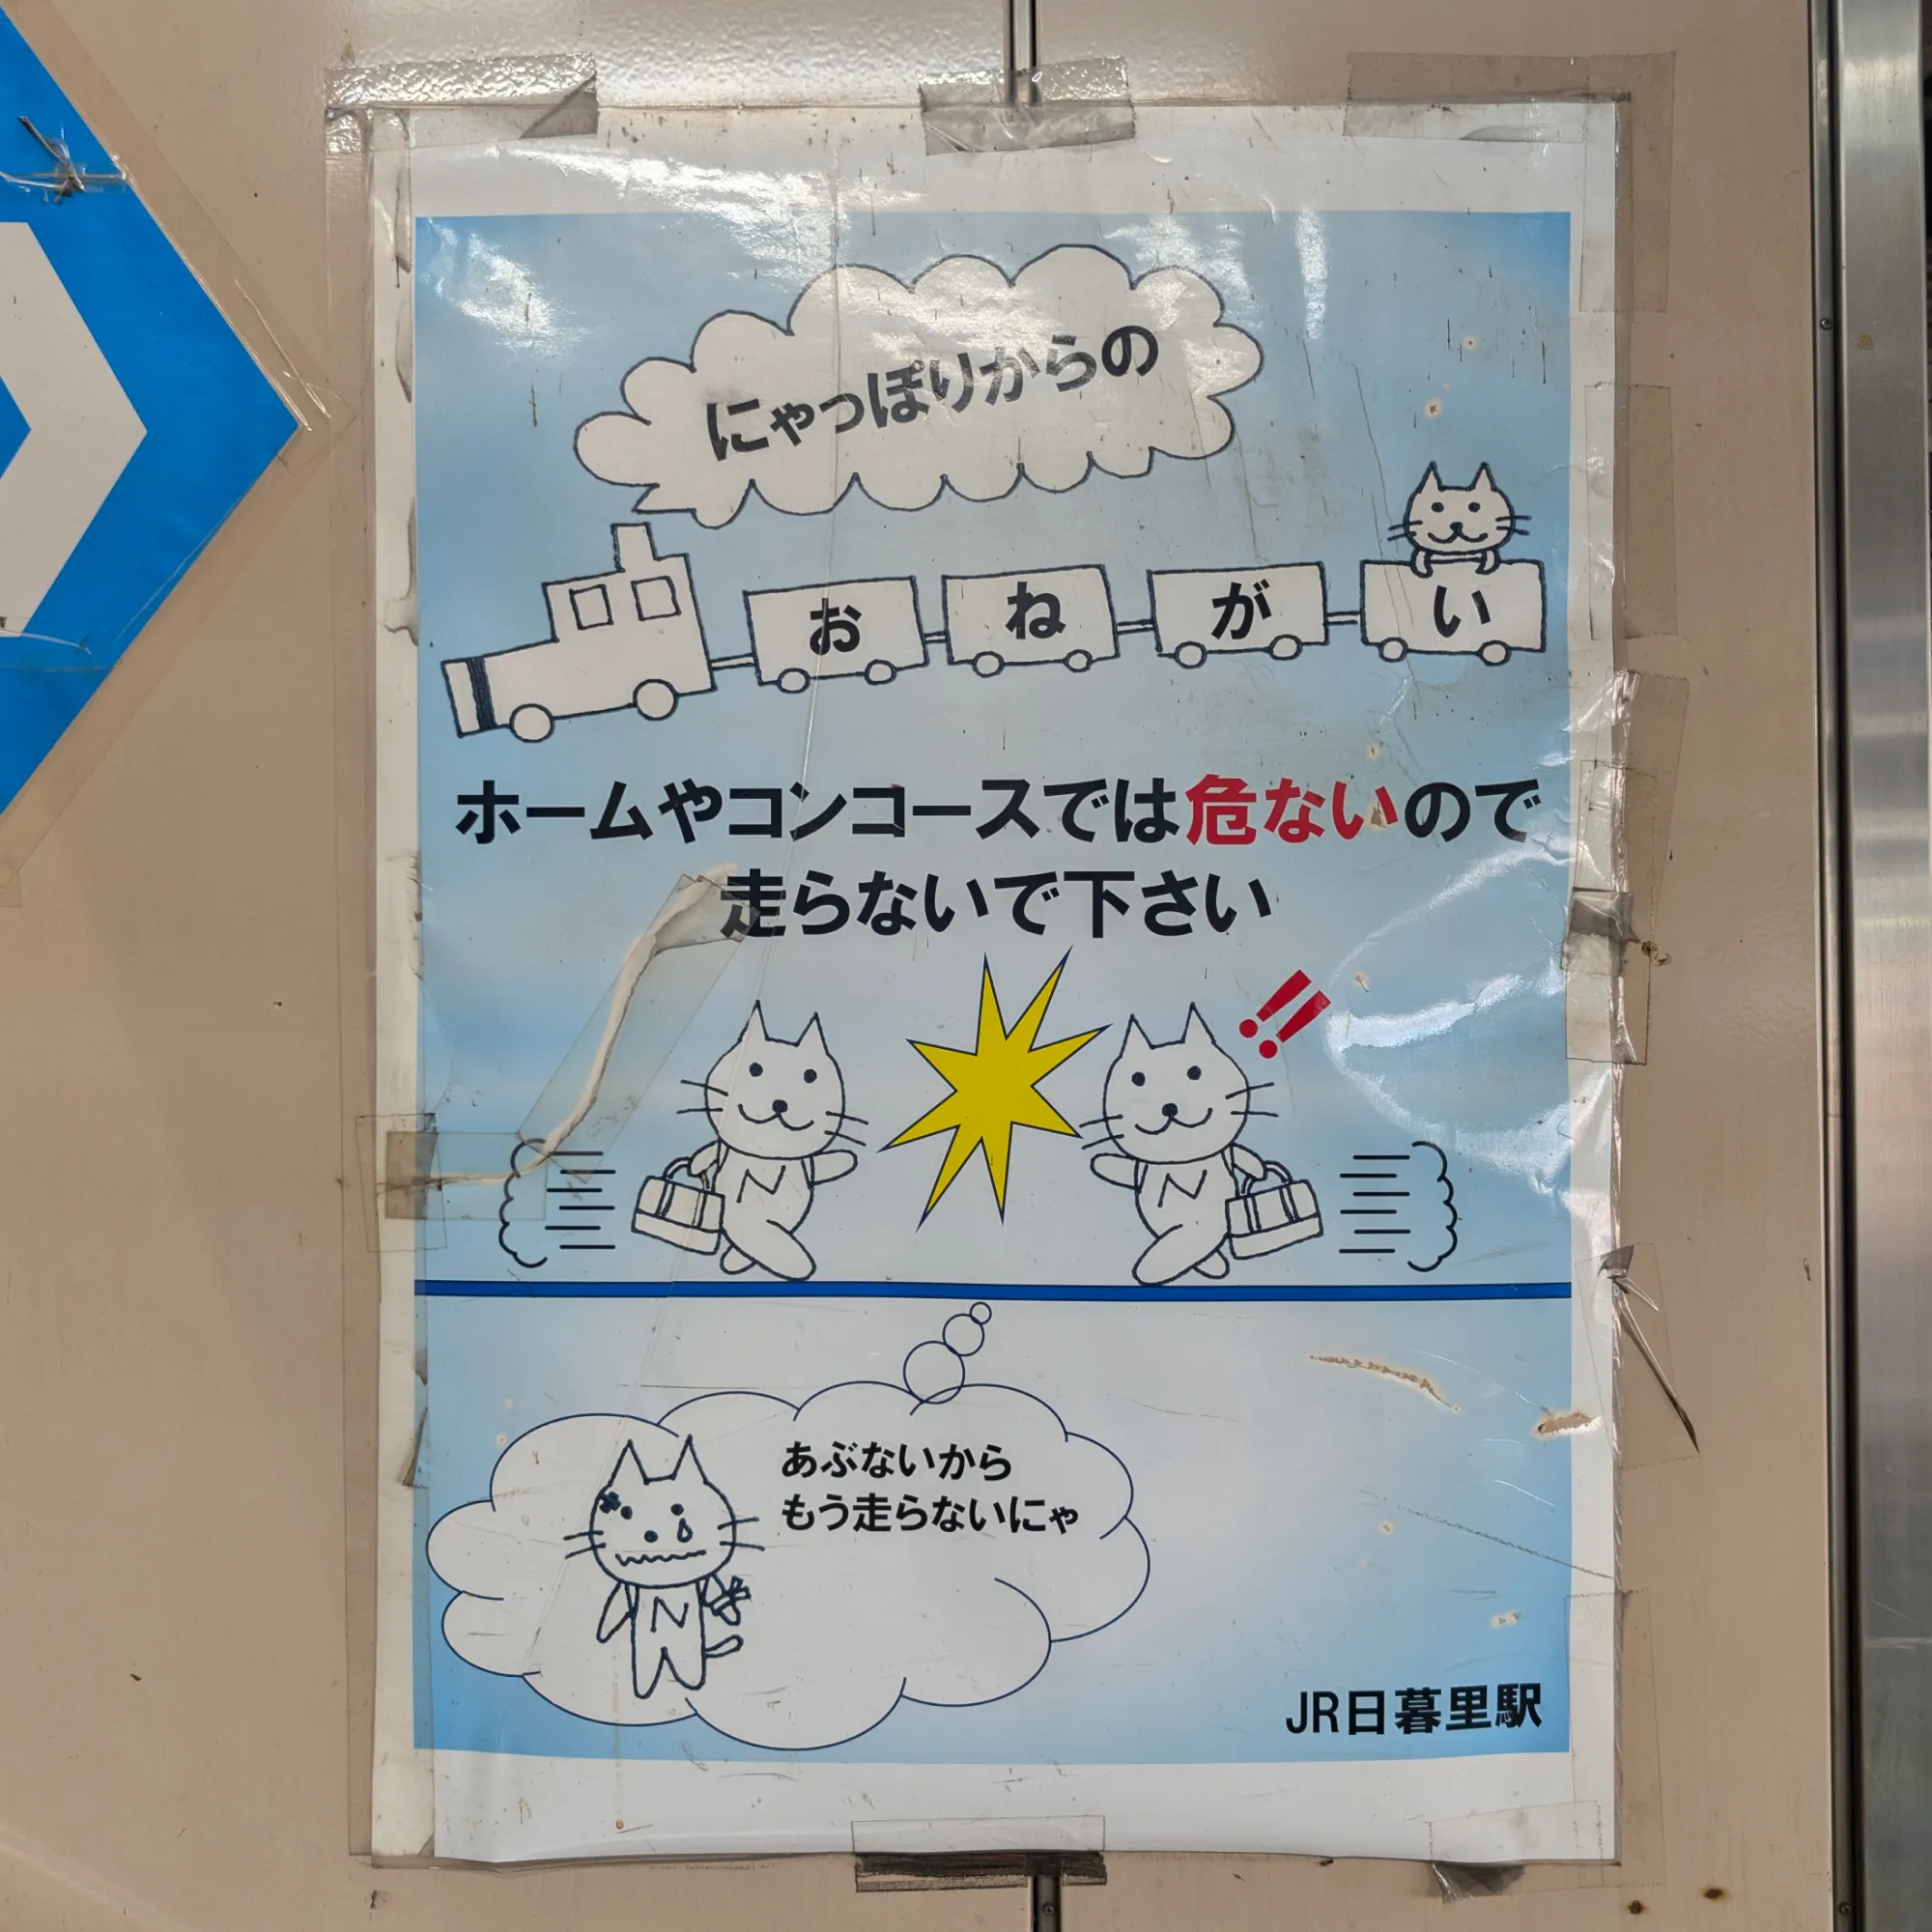 にゃっぽりからの
おねがい
ホームやコンコースでは危ないので
走らないで下さい
!!
N N
あぶないから
もう走らないにゃ
N
JR日暮里駅